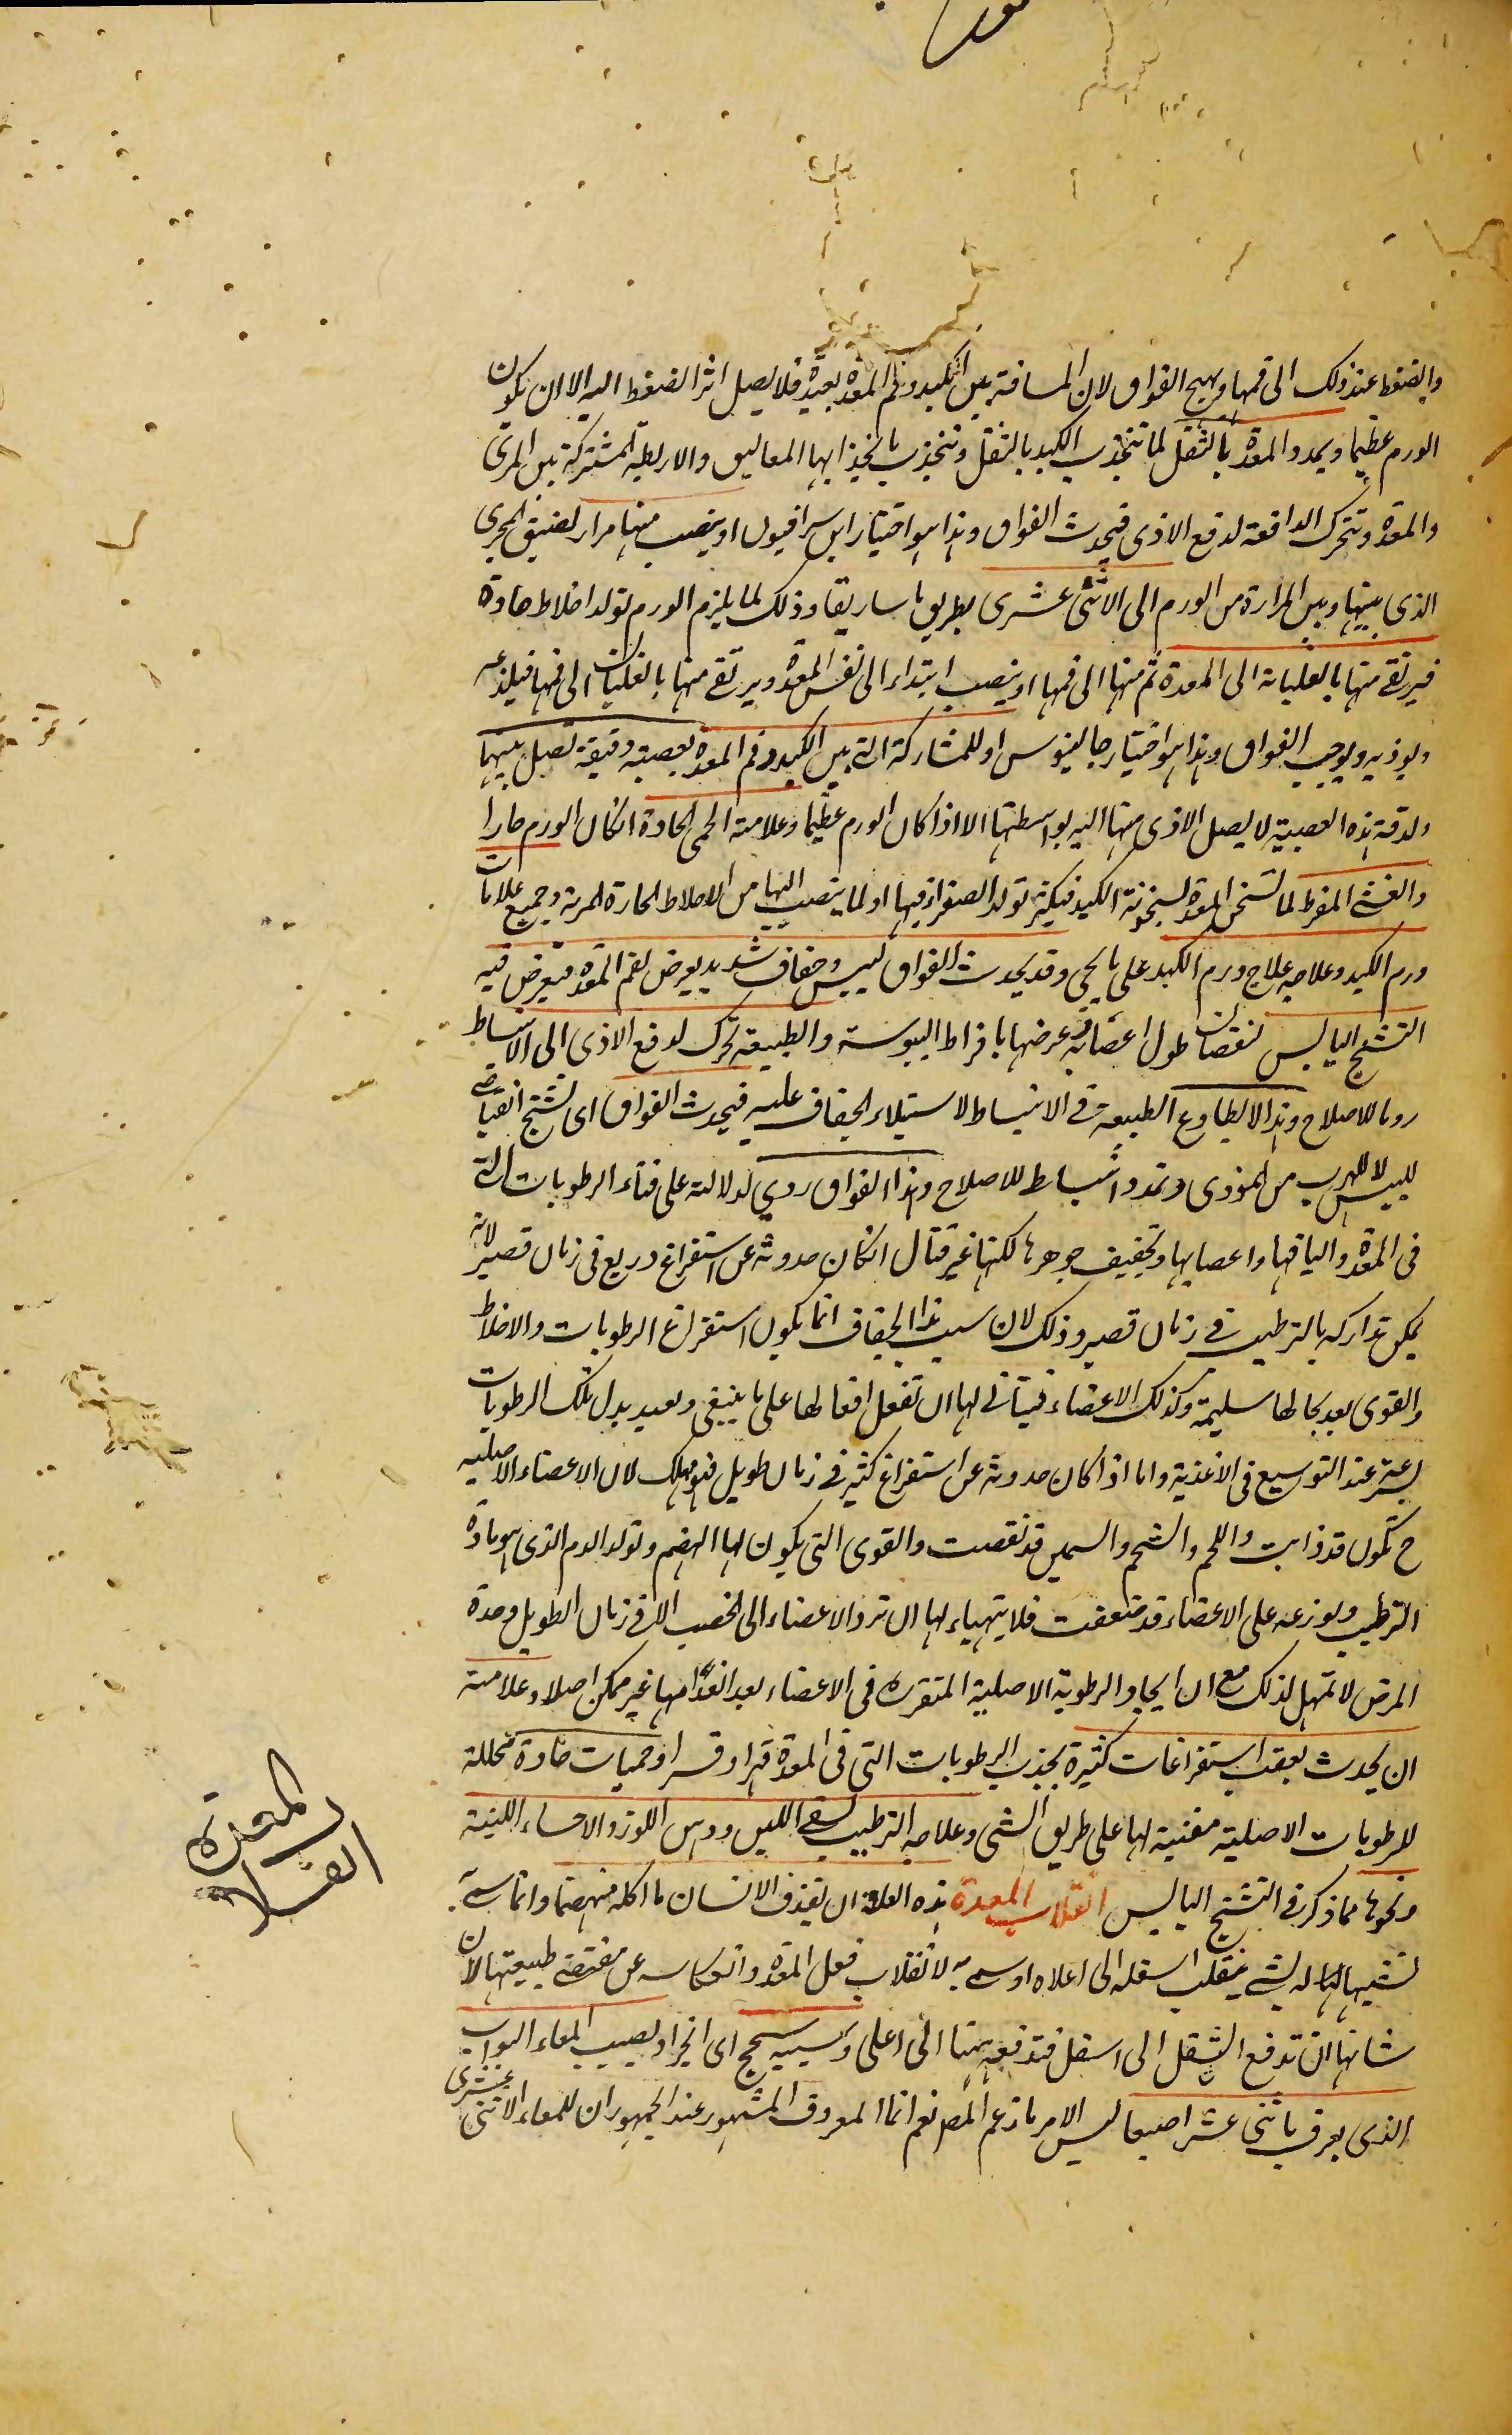 والضغط عند ذلك الى فمها ويهيج الفواق لان المسافة بين الكبد وفم المعدة بعيدة فلا يصل اثر الضغط اليه الا ان يكون
الورم عظيما ويمدد المعدة بالثقل لما تنجذب الكبد بالثقل وتنجذب بانجذابها المعاليق والاربطة المشتركة بين المرئ
والمعدة وتتحرك الدافعة لدفع الاذى فيحدث الفواق وهذا هو اختيار ابن سرافيون او ينصب منها مرار لضيق المجرى
الذى بينها وبين المرارة من الورم الى الاثنى عشرى بطريق ماساريقا وذلك لما يلزم الورم تولد اخلاط حادة
فيرتقى منها بالغليان الى المعدة ثم منها الى فمها او ينصب ابتداء الى نفس المعدة ويرتقى منها بالغليان الى فمها فيلذعه
ويوذيه ويوجب الفواق وهذا هو اختيار جالينوس او للمشاركة التى بين الكبد وفم المعدة بعصبة دقيقة تصل بينهما
ولدقة هذه العصبة لا يصل الاذى منها اليه بواسطتها الا اذا كان الورم عظيما وعلامته الحمى الحادة انكان الورم حارا
والغشى المفرط لما تسخن المعدة لسخونة الكبد فيكثر تولد الصفراء فيها او لما ينصب اليها من الاخلاط الحارة المرية وجميع علامات
ورم الكبد وعلاجه علاج ورم الكبد على ما يجئ وقد يحدث الفواق ليبس وجفاف شديد يعرض لفم المعدة فيعرض فيه
التشنج اليابس لنقصان طول اعصابه وعرضها بافراط اليبوسة والطبيعة تتحرك لدفع الاذى الى الانبساط
روما للاصلاح وهذا لا يطاوع الطبيعة فى الانبساط لاستيلاء الجفاف عليه فيحدث الفواق اى تشنج انقباضى
لليبس لا للهرب من الموذى وتمدد انبساط للاصلاح وهذا الفواق ردى لدلالته على فناء الرطوبات التى
فى المعدة واليافها واعصابها وتجفيف جوهرها لكنها غير قتال انكان حدوثه عن استفراغ ذريع فى زمان قصير لانه
يمكن تداركه بالترطيب فى زمان قصير وذلك لان سبب هذا الجفاف انما يكون استفراغ الرطوبات والاخلاط
والقوى بعد بحالها سليمة وكذلك الاعضاء فيتأتى لها ان تفعل افعالها على ما ينبغى وتعيد بدل تلك الرطوبات
بسرعة عند التوسيع فى الاغذية واما اذا كان حدوثه عن استفراغ كثير فى زمان طويل فهو مهلك لان الاعضاء الاصلية
ح تكون قد ذابت واللحم والشحم والسمين قد نقصت والقوى التى يكون لها الهضم وتولد الدم الذى هو مادة
الترطيب ويوزعه على الاعضاء قد ضعفت فلا يتهياء لها ان ترد الاعضاء الى الخصب الا فى زمان الطويل وحدة
المرض لا تمهل لذلك مع ان ايجاد الرطوبة الاصلية المتقررة فى الاعضاء بعد انعدامها غير ممكن اصلا وعلامته
ان يحدث بعقب استفراغات كثيرة يجذب الرطوبات التى فى المعدة قهرا وقسرا وحميات حادة محللة
للرطوبات الاصلية مفنية لها على طريق الشى وعلاجه الترطيب بسقى اللبن ودهن اللوز والاحساء اللينة
ونحوها مما ذكر فى التشنج اليابس انقلاب المعدة هذه العلة ان يقذف الانسان ما اكله منهضما وانما سمى به
تشبيها لها له بشئ ينقلب اسفله الى اعلاه او سمى به لانقلاب فعل المعدة وانعكاسه عن مقتضى طبيعتها لان
شانها ان تدفع الثقل الى اسفل فتدفعه ههنا الى اعلى وسببه سحج اى انجراد يصيب المعاء البواب
الذى يعرف باثنى عشر اصبعا ليس الامر ما زعم المص نعم انما المعروف المشهور عند الجمهور ان للمعاء الاثنى عشرى
انقلاب المعدة